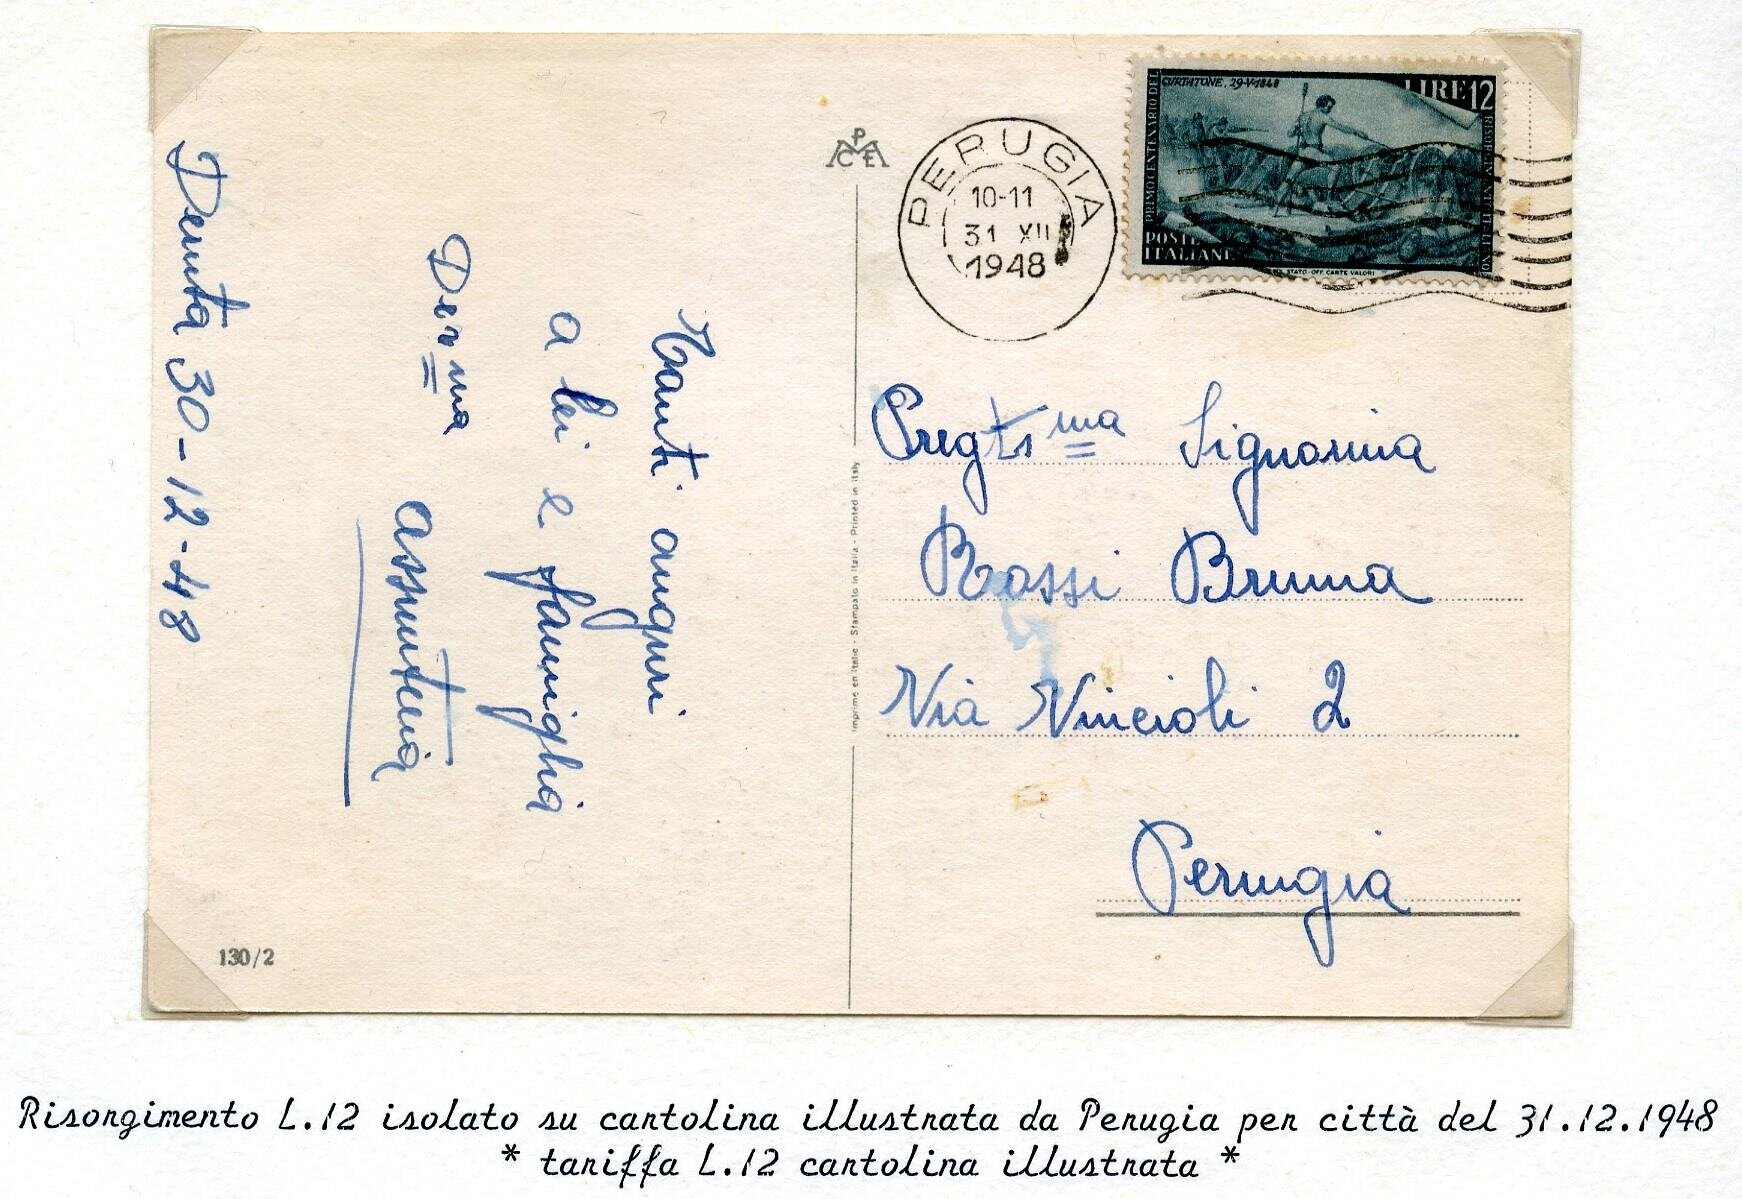 Deruta 30-12-48
Tanti auguri
a lei e famiglia
Dev.ma
Assunteria
130/2
PCE
Imprimé en Italie - Stampato in Italia - Printed in Italy
PERUGIA
10-11
31 XII
1948
CURTATONE, 29-V-1848
LIRE 12
PRIMO CENTENARIO DEL
RISORGIMENTO ITALIANO
POSTE
ITALIANE
IST. POL. STATO-OFF. CARTE VALORI
Pregts ma Signorina
Rossi Bruna
Via Vincioli 2
Perugia
Risorgimento L.12 isolato su cartolina illustrata da Perugia per città del 31.12.1948
* tariffa L.12 cartolina illustrata *